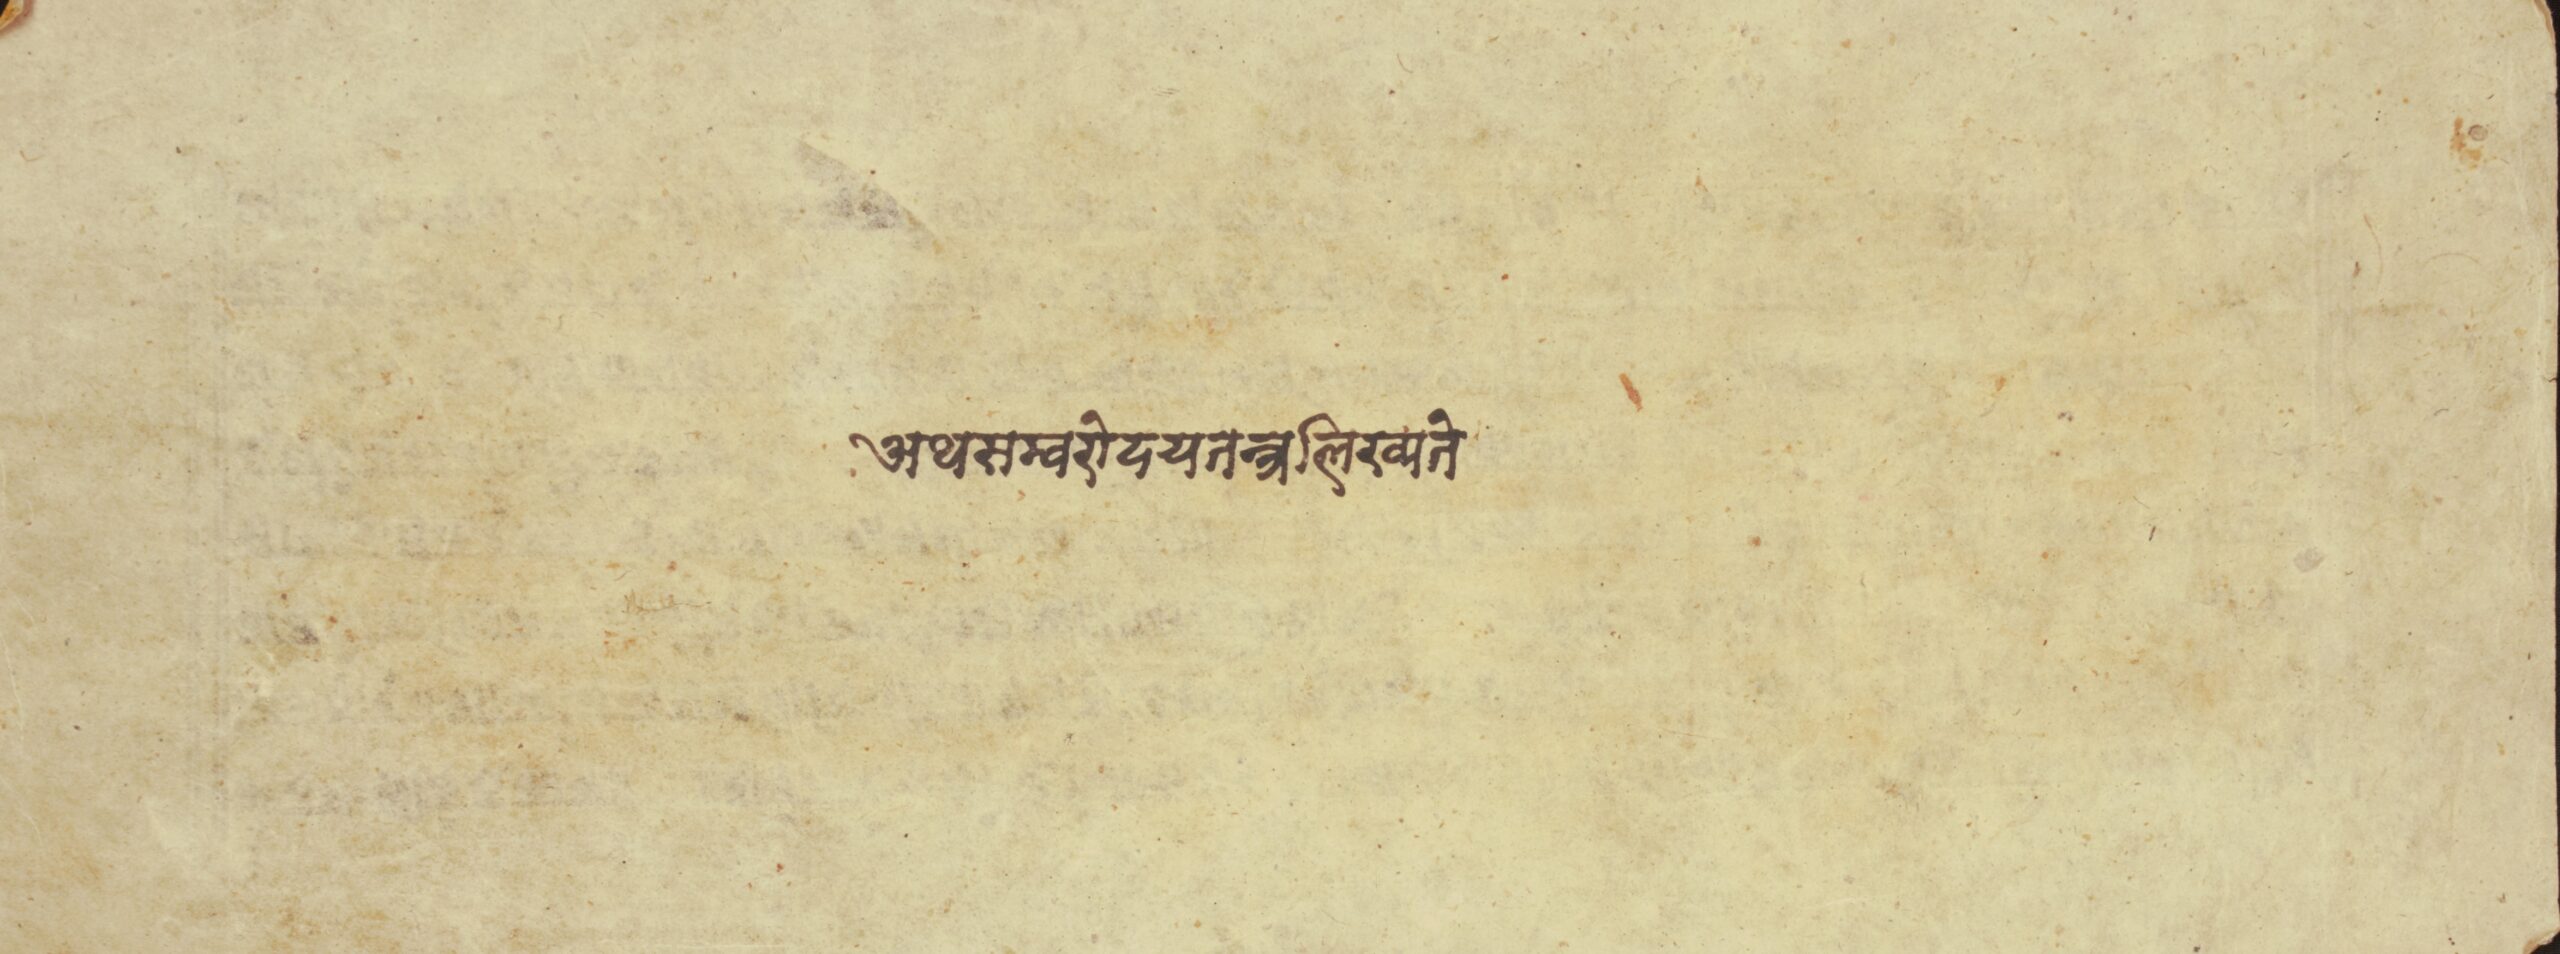 अथसम्वरोदयतन्त्रलिख्यते